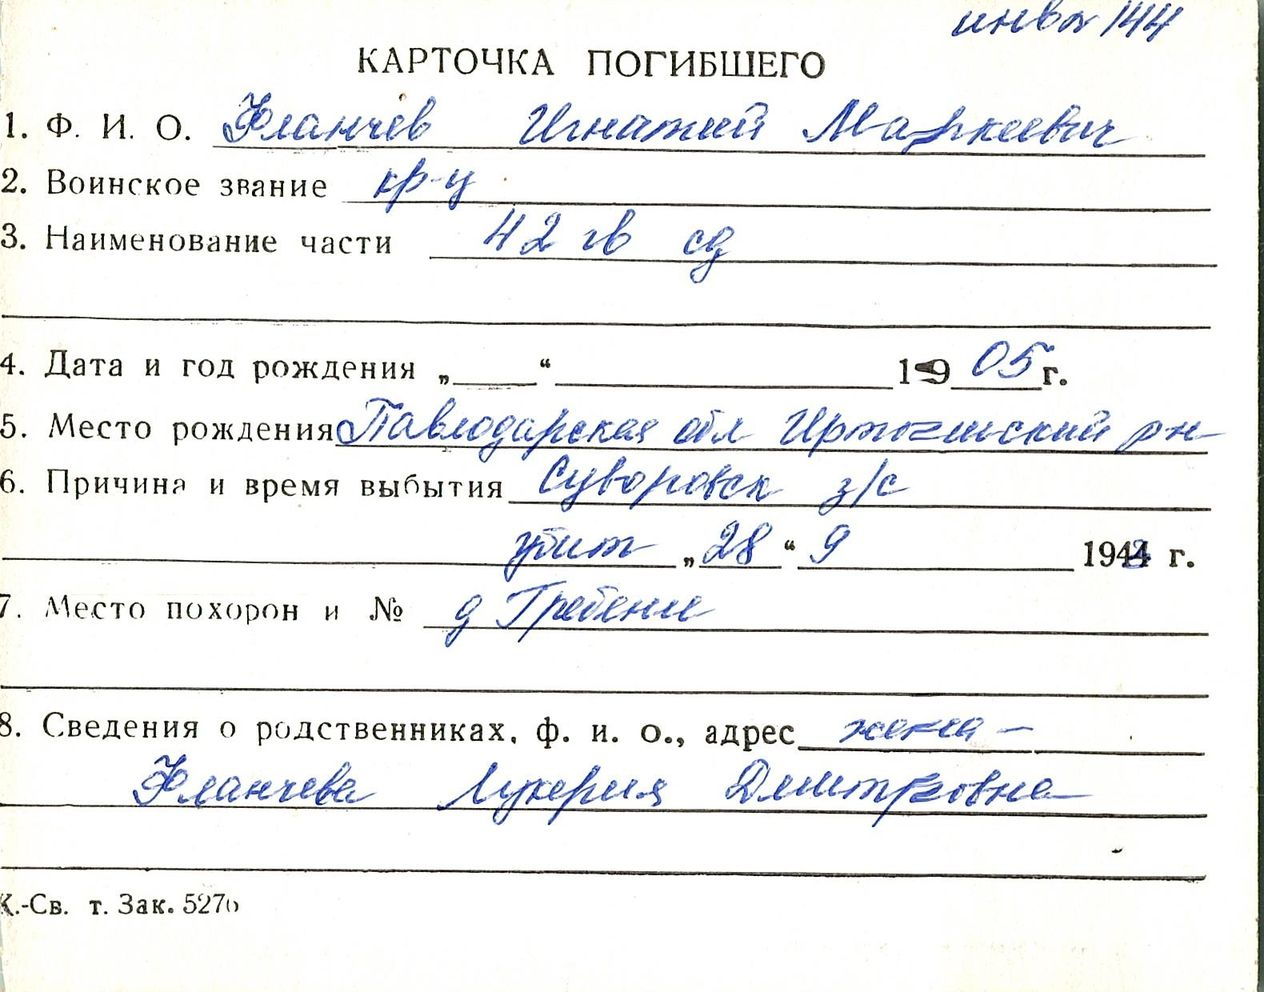 инв № 144
КАРТОЧКА ПОГИБШЕГО
1. Ф. И. О. Уланчев Игнатий Маркеевич
2. Воинское звание кр-ц
3. Наименование части 42 гв сд
4. Дата и год рождения „ “ 1905 г.
5. Место рождения Павлодарская обл Иртышский рн
6. Причина и время выбытия Суворовск з/с
убит „28“ 9 1943 г.
7. Место похорон и № д Гребение
8. Сведения о родственниках, ф. и. о., адрес жена –
Лукерия Дмитровна
К.-Св. т. Зак. 5276